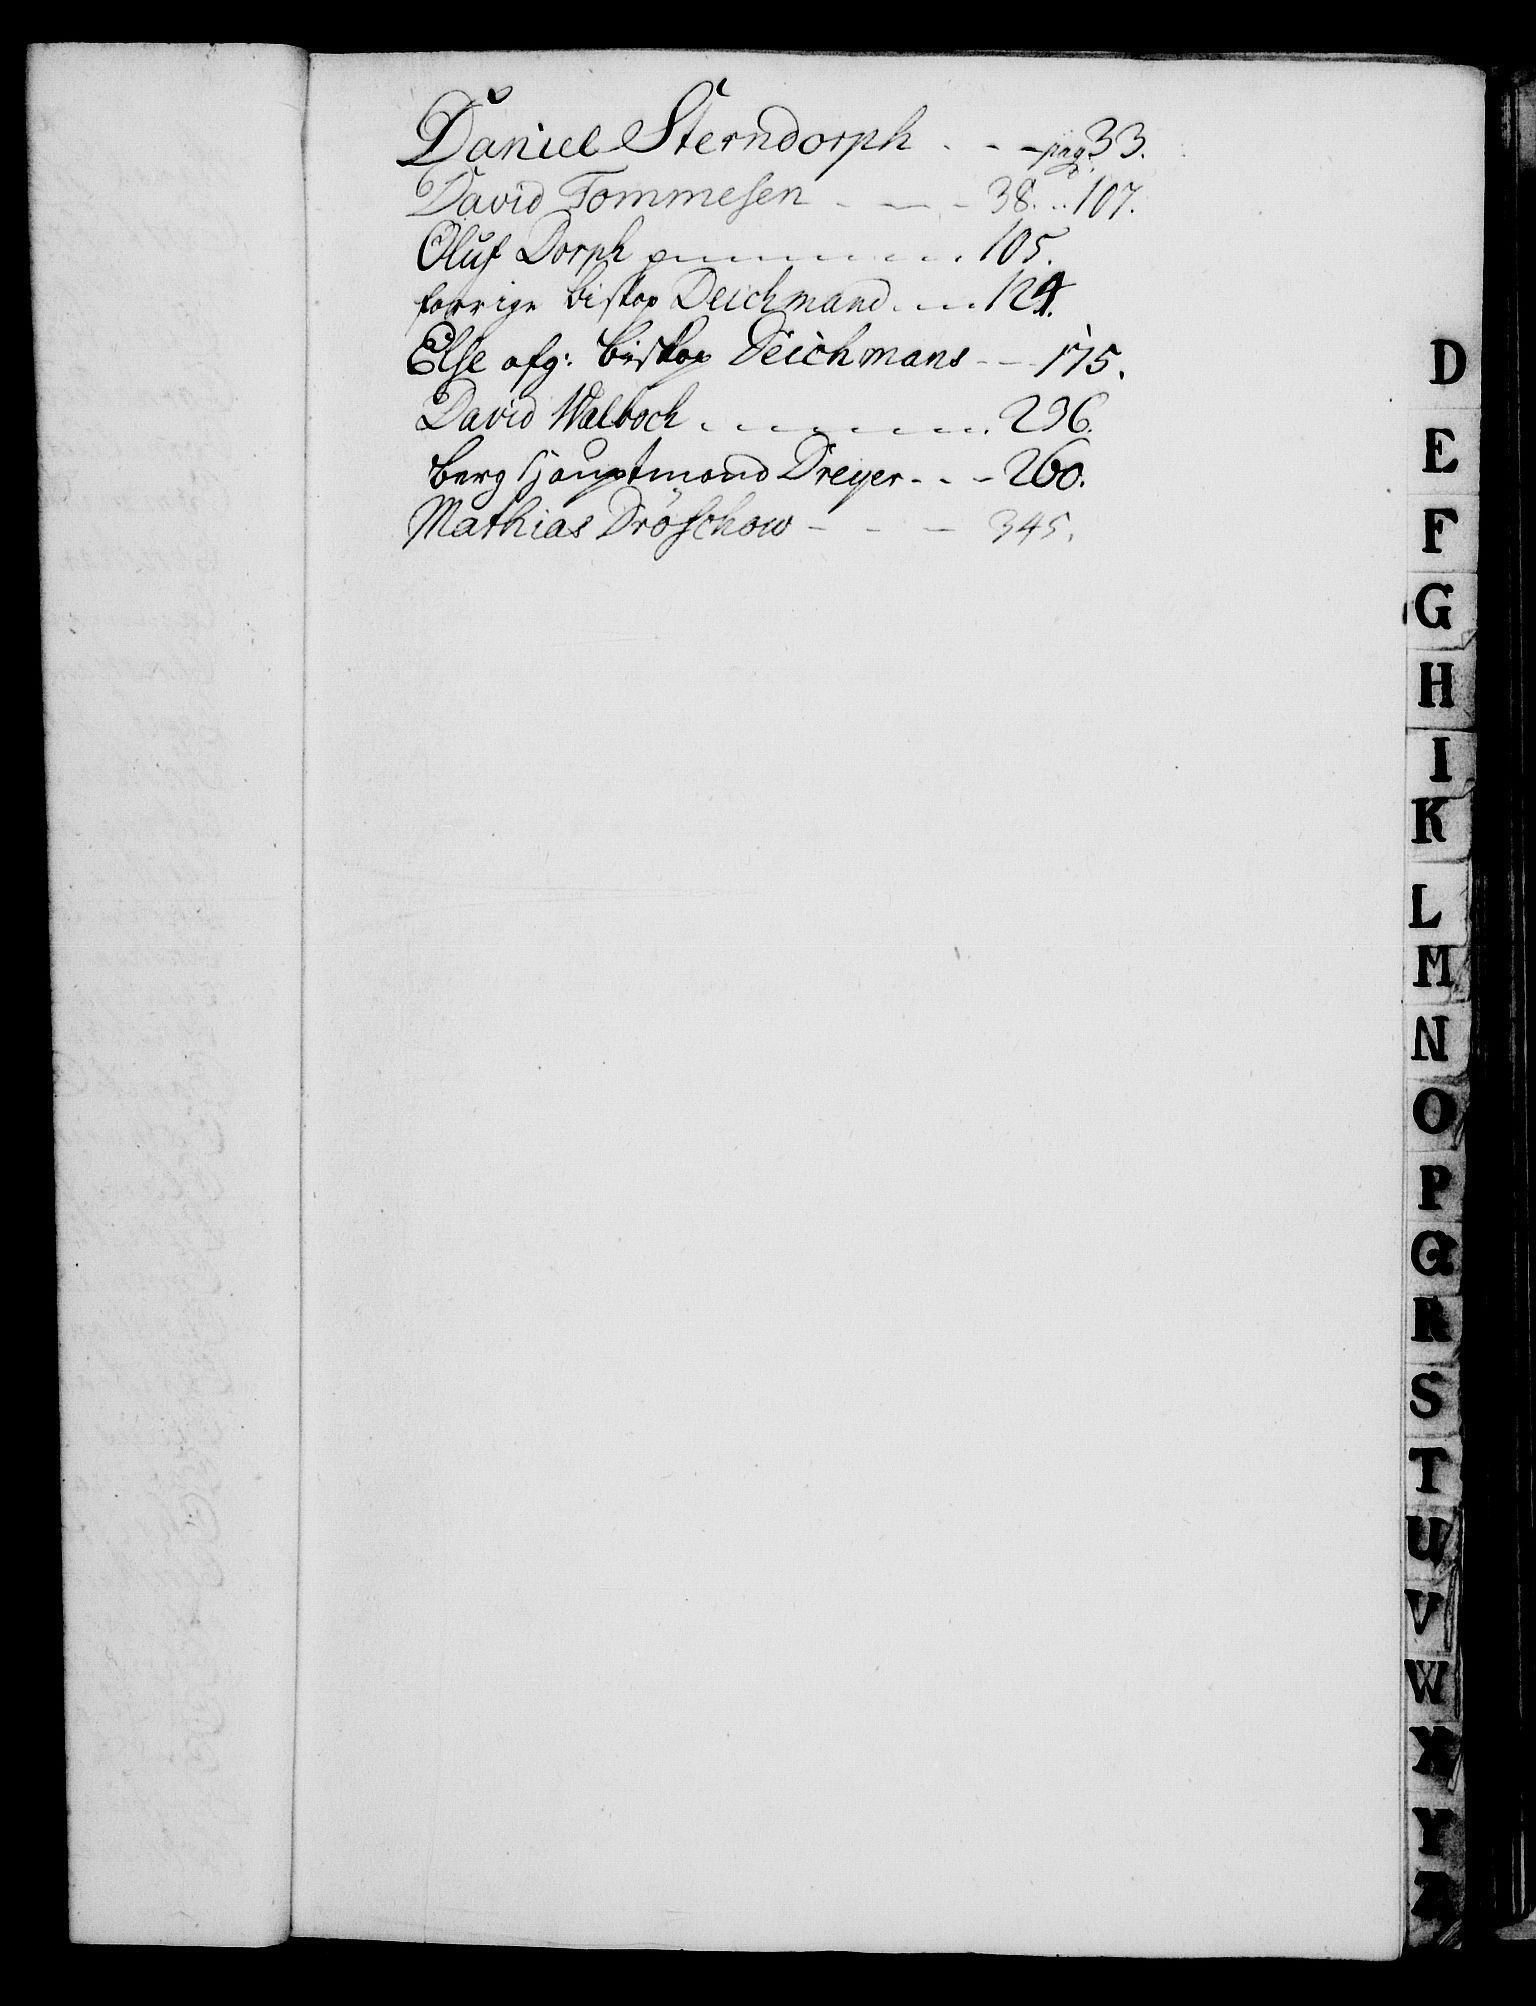 Daniel Sterndorph - - - pag. 33.
David Tommesen - - - 38. .. 107.
Oluf Dorph 105.
forrige biskop Deichmand . - . . 124.
Else afg: biskop Deichmans - - 175.
David Walboch . - - - - - - . 236.
berg Hauptmand Dreyer - - - 260.
Mathias Dröschow - - - 345.
D
E
F
G
H
I
K
L
M
N
O
P
Q
R
S
T
U
V
W
X
Y
Z